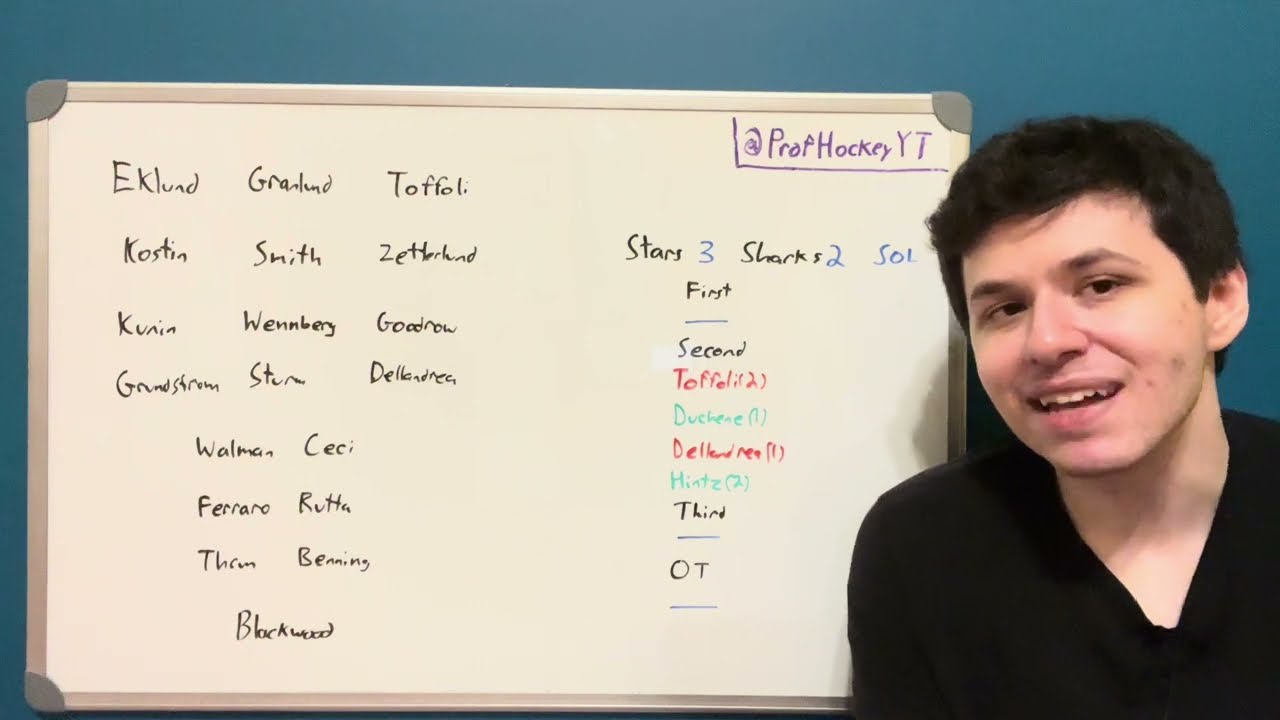 @ProfHockeyYT
Eklund Granlund Toffoli
Kostin Smith Zetterlund
Kunin Wennberg Goodrow
Grundstrom Sturm Dellandrea
Walman Ceci
Ferraro Rutta
Thrun Benning
Blackwood
Stars 3 Sharks 2 SOL
First
Second
Toffoli(2)
Duchene(1)
Dellandrea(1)
Hintz(2)
Third
OT